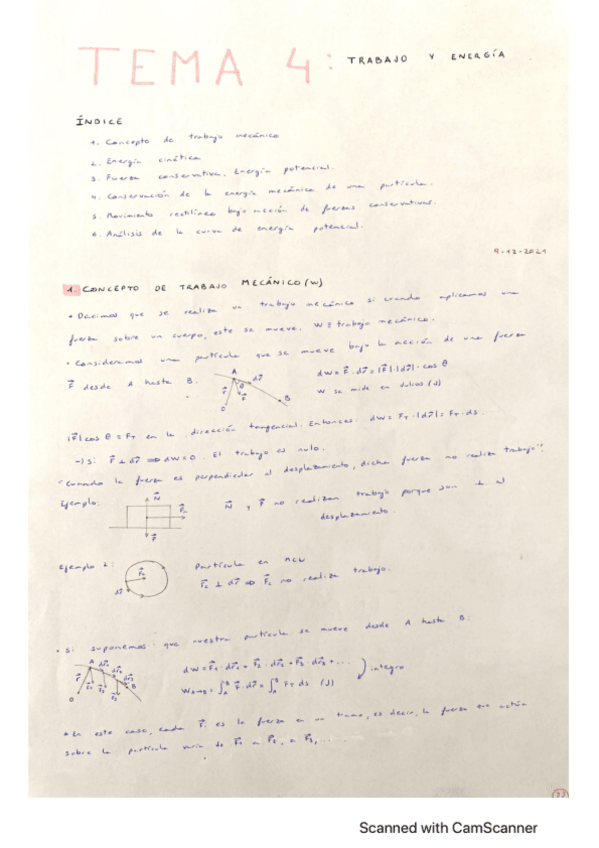 TEMA 4: TRABAJO Y ENERGÍA
ÍNDICE
1. Concepto de trabajo mecánico
2. Energía cinética
3. Fuerza conservativa. Energía potencial.
4. Conservación de la energía mecánica de una partícula.
5. Movimiento rectilíneo bajo acción de fuerzas conservativas.
6. Análisis de la curva de energía potencial.
9-12-2021
1. CONCEPTO DE TRABAJO MECÁNICO (W)
• Decimos que se realiza un trabajo mecánico si cuando aplicamos una
fuerza sobre un cuerpo, este se mueve. W ≡ trabajo mecánico.
• Consideramos una partícula que se mueve bajo la acción de una fuerza
F⃗ desde A hasta B.
A dr⃗ θ r⃗ F⃗ B O
dW = F⃗ · dr⃗ = |F⃗| · |dr⃗| · cos θ
W se mide en Julios (J)
|F⃗| cos θ = FT en la dirección tangencial. Entonces: dW = FT · |dr⃗| = FT · ds.
→ Si F⃗ ⊥ dr⃗ ⇒ dW = 0. El trabajo es nulo.
"Cuando la fuerza es perpendicular al desplazamiento, dicha fuerza no realiza trabajo".
Ejemplo:
N⃗
P⃗
N⃗ y P⃗ no realizan trabajo porque son ⊥ al
desplazamiento.
Ejemplo 2:
dr⃗
Partícula en MCU
F⃗c ⊥ dr⃗ ⇒ F⃗c no realiza trabajo.
• Si suponemos que nuestra partícula se mueve desde A hasta B:
A dr⃗1 dr⃗2 dr⃗3 B
r⃗ F⃗1 F⃗2 F⃗3
O
dW = F⃗1 · dr⃗1 + F⃗2 · dr⃗2 + F⃗3 · dr⃗3 + ...
WA→B = ∫A^B F⃗ · dr⃗ = ∫A^B FT ds (J)
integro
* En este caso, cada F⃗i es la fuerza en un tramo, es decir, la fuerza que actúa
sobre la partícula varía de F⃗1 a F⃗2, a F⃗3, ....
Scanned with CamScanner